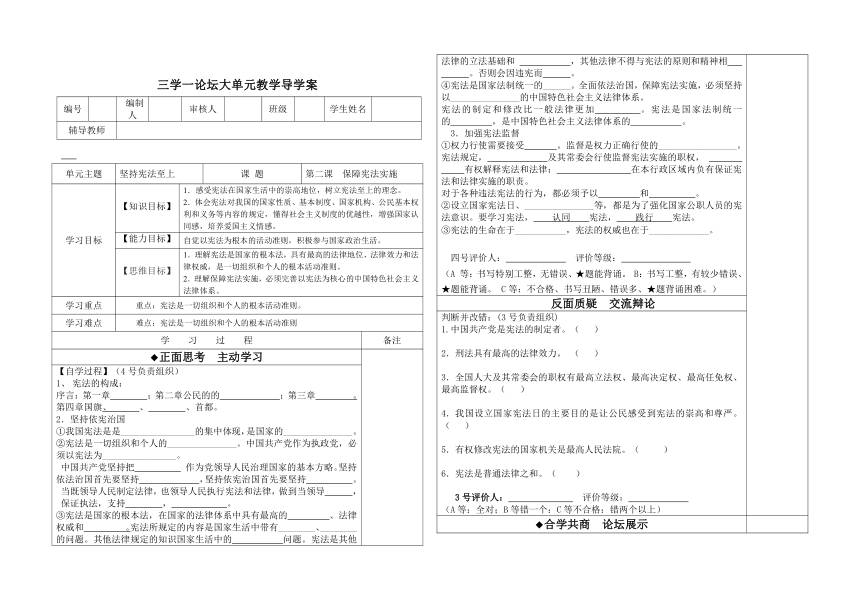 三学一论坛大单元教学导学案
编号 编制人 审核人 班级 学生姓名
辅导教师
单元主题 坚持宪法至上 课 题 第二课 保障宪法实施
学习目标
【知识目标】
1. 感受宪法在国家生活中的崇高地位，树立宪法至上的理念。
2. 体会宪法对我国的国家性质、基本制度、国家机构、公民基本权
利和义务等内容的规定，懂得社会主义制度的优越性，增强国家认
同感，培养爱国主义情感。
【能力目标】 自觉以宪法为根本的活动准则，积极参与国家政治生活。
【思维目标】
1. 理解宪法是国家的根本法，具有最高的法律地位、法律效力和法
律权威，是一切组织和个人的根本活动准则。
2. 理解保障宪法实施，必须完善以宪法为核心的中国特色社会主义
法律体系。
学习重点 重点：宪法是一切组织和个人的根本活动准则。
学习难点 难点：宪法是一切组织和个人的根本活动准则
学 习 过 程 备注
◆正面思考 主动学习
【自学过程】（4 号负责组织）
1、 宪法的构成：
序言；第一章________；第二章公民的的____________；第三章________。
第四章国旗、________、________、首都。
2．坚持依宪治国
①我国宪法是是________________的集中体现，是国家的______________。
②宪法是一切组织和个人的______________。中国共产党作为执政党，必
须以宪法为______________。
中国共产党坚持把__________ 作为党领导人民治理国家的基本方略。坚持
依法治国首先要坚持____________，坚持依宪治国首先要坚持__________。
当既领导人民制定法律，也领导人民执行宪法和法律，做到当领导______，
保证执法，支持________，____________。
③宪法是国家的根本法，在国家的法律体系中具有最高的________、法律
权威和________。宪法所规定的内容是国家生活中带有______、________
的问题。其他法律规定的知识国家生活中的__________问题。宪法是其他
法律的立法基础和 __________，其他法律不得与宪法的原则和精神相____
______。否则会因违宪而______。
④宪法是国家法制统一的______。全面依法治国，保障宪法实施，必须坚持
以______________的中国特色社会主义法律体系。
宪法的制定和修改比一般法律更加________。宪法是国家法制统一
的________，是中国特色社会主义法律体系的__________。
3．加强宪法监督
①权力行使需要接受______。监督是权力正确行使的________________。
宪法规定，____________及其常委会行使监督宪法实施的职权，________
______有权解释宪法和法律；______________在本行政区域内负有保证宪
法和法律实施的职责。
对于各种违法宪法的行为，都必须予以________和________。
②设立国家宪法日、______________等，都是为了强化国家公职人员的宪
法意识。要学习宪法，__认同__宪法，__践行__宪法。
③宪法的生命在于__________，宪法的权威也在于____________。
四号评价人：____________ 评价等级：______________
（A 等：书写特别工整，无错误、★题能背诵。 B：书写工整，有较少错误、
★题能背诵。 C 等：不合格、书写丑陋、错误多、★题背诵困难。）
反面质疑 交流辩论
判断并改错：（3 号负责组织）
1.中国共产党是宪法的制定者。（ ）
2．刑法具有最高的法律效力。 （ ）
3．全国人大及其常委会的职权有最高立法权、最高决定权、最高任免权、
最高监督权。（ ）
4．我国设立国家宪法日的主要目的是让公民感受到宪法的崇高和尊严。
（ ）
5．有权修改宪法的国家机关是最高人民法院。（ ）
6．宪法是普通法律之和。（ ）
3 号评价人：____________ 评价等级：____________
（A等：全对；B等错一个；C等不合格；错两个以上）
◆合学共商 论坛展示